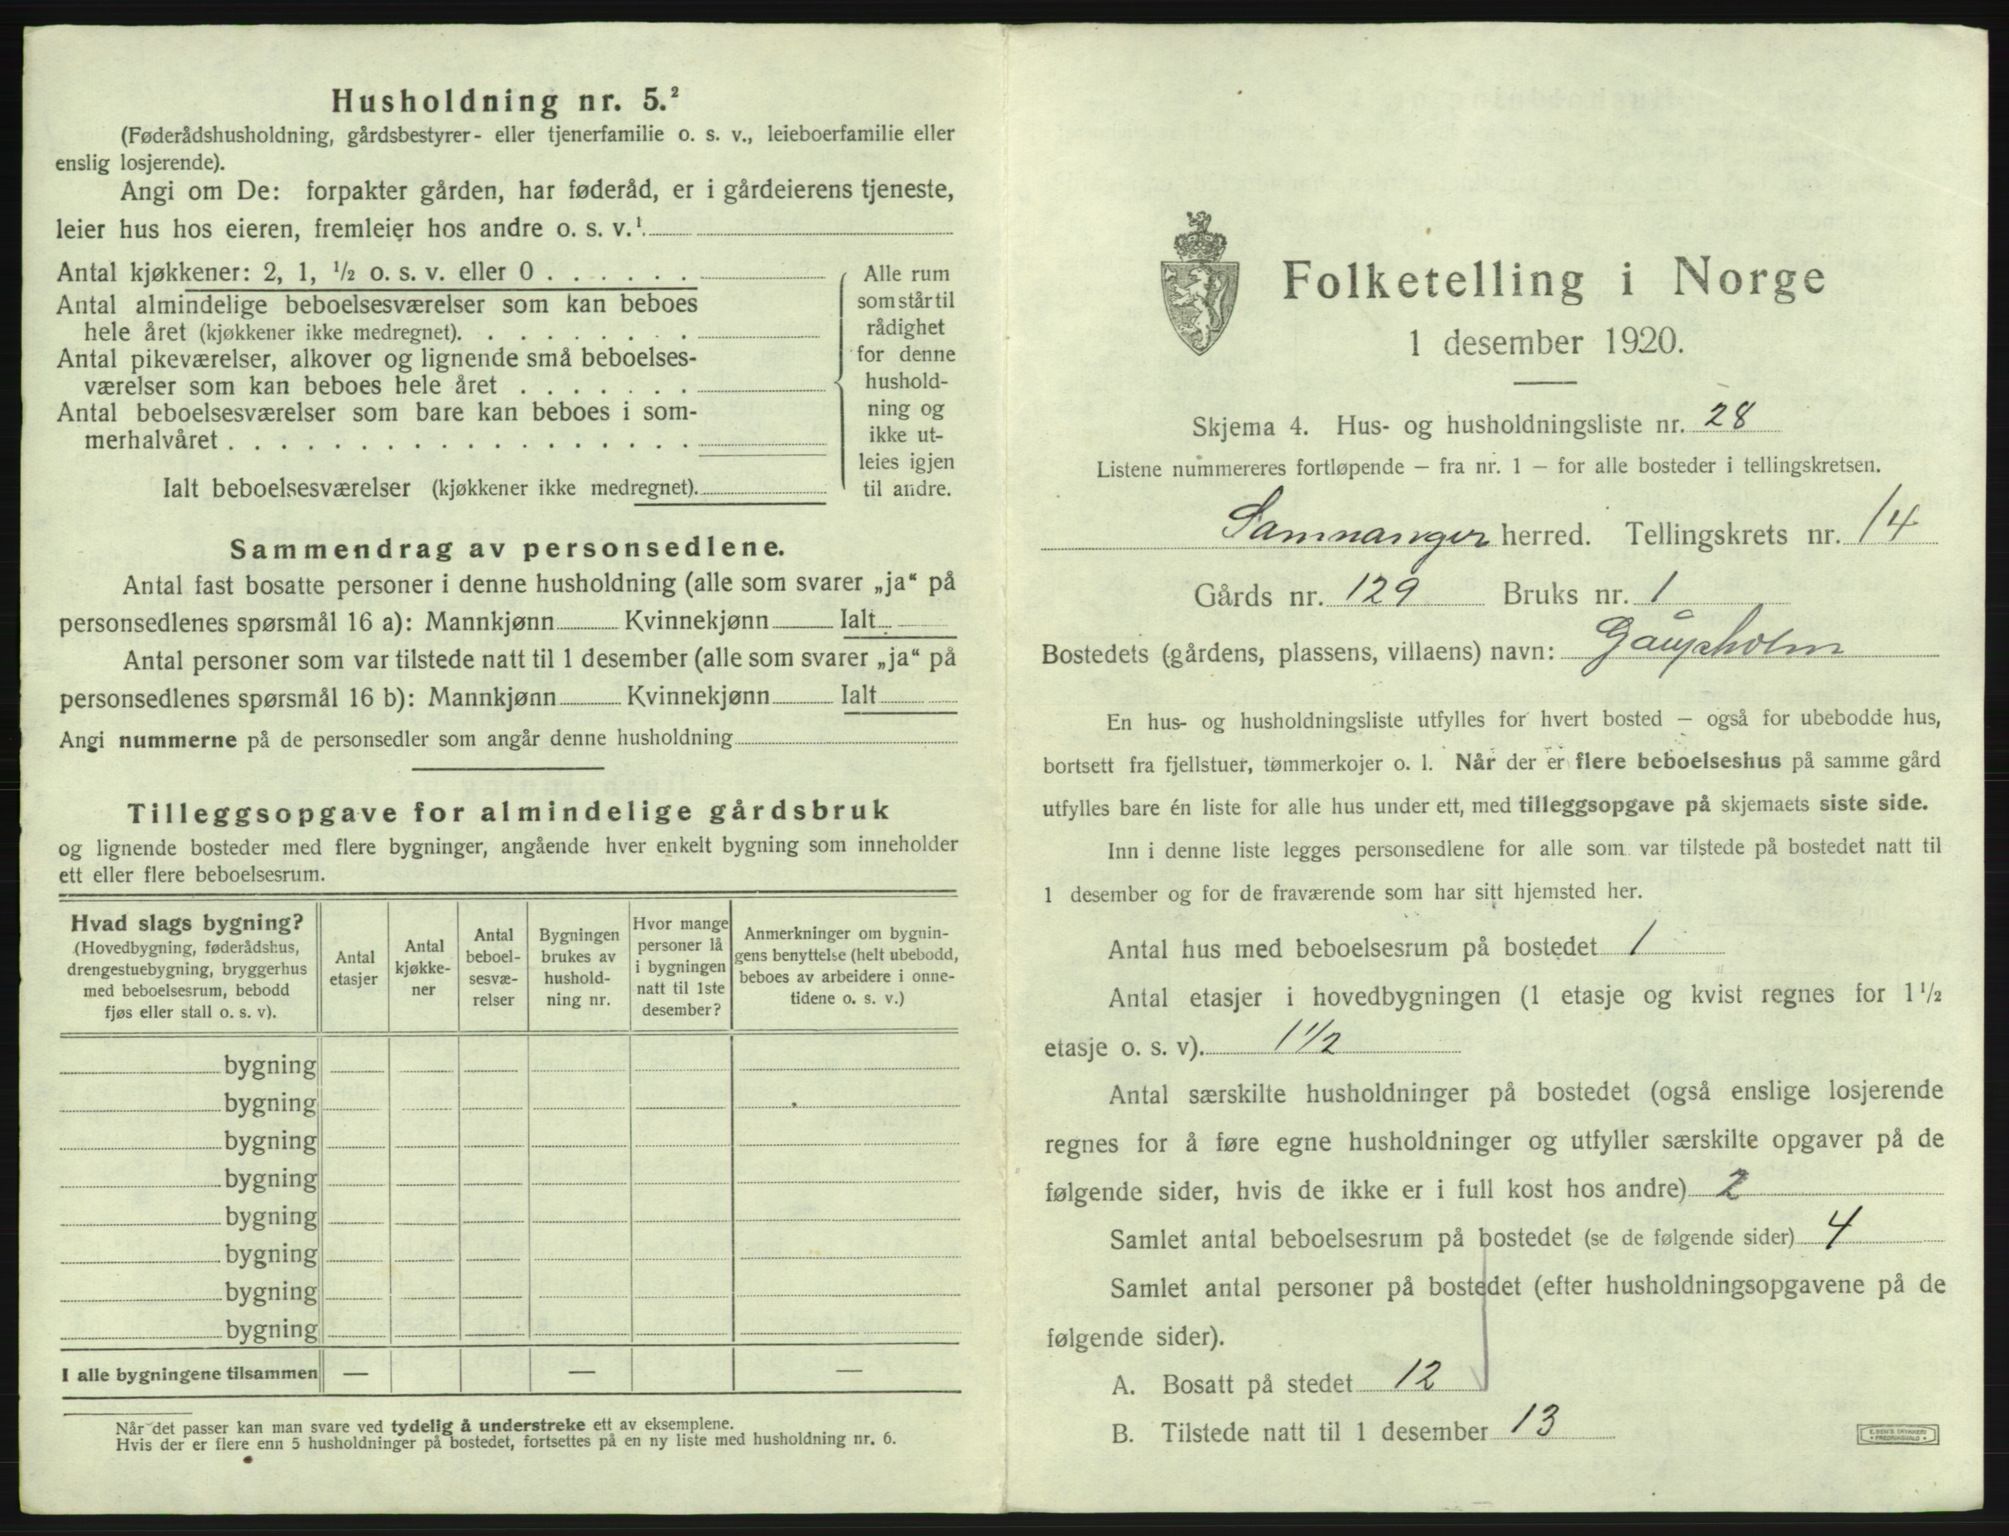 Husholdning nr. 5.²
(Føderådshusholdning, gårdsbestyrer- eller tjenerfamilie o. s. v., leieboerfamilie eller
enslig losjerende).
Angi om De: forpakter gården, har føderåd, er i gårdeierens tjeneste,
leier hus hos eieren, fremleier hos andre o. s. v.¹
Antal kjøkkener: 2, 1, ½ o. s. v. eller 0 . . . . . .
Antal almindelige beboelsesværelser som kan beboes
hele året (kjøkkener ikke medregnet). . . . . . . . .
Antal pikeværelser, alkover og lignende små beboelses-
værelser som kan beboes hele året . . . . . . .
Antal beboelsesværelser som bare kan beboes i som-
merhalvåret . . . . . . . . . . . . . . . . . .
Ialt beboelsesværelser (kjøkkener ikke medregnet).
Alle rum
som står til
rådighet
for denne
hushold-
ning og
ikke ut-
leies igjen
til andre.
Sammendrag av personsedlene.
Antal fast bosatte personer i denne husholdning (alle som svarer „ja“ på
personsedlenes spørsmål 16 a): Mannkjønn Kvinnekjønn Ialt
Antal personer som var tilstede natt til 1 desember (alle som svarer „ja“ på
personsedlenes spørsmål 16 b): Mannkjønn Kvinnekjønn Ialt
Angi nummerne på de personsedler som angår denne husholdning
Tilleggsopgave for almindelige gårdsbruk
og lignende bosteder med flere bygninger, angående hver enkelt bygning som inneholder
ett eller flere beboelsesrum.
Hvad slags bygning?
(Hovedbygning, føderådshus,
drengestuebygning, bryggerhus
med beboelsesrum, bebodd
fjøs eller stall o. s. v).
Antal
etasjer
Antal
kjøkke-
ner
Antal
beboel-
sesvæ-
relser
Bygningen
brukes av
hushold-
ning nr.
Hvor mange
personer lå
i bygningen
natt til 1ste
desember?
Anmerkninger om bygnin-
gens benyttelse (helt ubebodd,
beboes av arbeidere i onne-
tidene o. s. v.)
bygning
bygning
bygning
bygning
bygning
bygning
bygning
bygning
I alle bygningene tilsammen — — —
Når det passer kan man svare ved tydelig å understreke ett av eksemplene.
Hvis der er flere enn 5 husholdninger på bostedet, fortsettes på en ny liste med husholdning nr. 6.
Folketelling i Norge
1 desember 1920.
Skjema 4. Hus- og husholdningsliste nr. 28
Listene nummereres fortløpende — fra nr. 1 — for alle bosteder i tellingskretsen.
Samnanger herred. Tellingskrets nr. 14
Gårds nr. 129 Bruks nr. 1
Bostedets (gårdens, plassens, villaens) navn: Gaupholm
En hus- og husholdningsliste utfylles for hvert bosted — også for ubebodde hus,
bortsett fra fjellstuer, tømmerkojer o. l. Når der er flere beboelseshus på samme gård
utfylles bare én liste for alle hus under ett, med tilleggsopgave på skjemaets siste side.
Inn i denne liste legges personsedlene for alle som var tilstede på bostedet natt til
1 desember og for de fraværende som har sitt hjemsted her.
Antal hus med beboelsesrum på bostedet 1
Antal etasjer i hovedbygningen (1 etasje og kvist regnes for 1½
etasje o. s. v). 1½
Antal særskilte husholdninger på bostedet (også enslige losjerende
regnes for å føre egne husholdninger og utfyller særskilte opgaver på de
følgende sider, hvis de ikke er i full kost hos andre) 2
Samlet antal beboelsesrum på bostedet (se de følgende sider) 4
Samlet antal personer på bostedet (efter husholdningsopgavene på de
følgende sider).
A. Bosatt på stedet 12
B. Tilstede natt til 1 desember 13